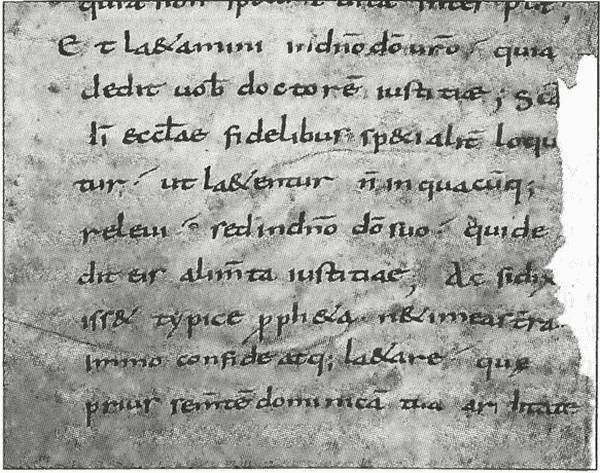 quia non
Et la&amini indño dō urō · quia
dedit uob̄ doctorē iustitiae ; Scđ
li eccłae fidelibus sp&ialit̄ loqu
tur · ut la&entur n̄ in quacūq;
releui · sed indño dō suo · qui de
dit eis alim̄ta iustitiae, Ac si dix
iss& typice ꝓph&a n&imeas t̄ra
Immo confide atq; la&are · quę
prius sem̄tē dominicā tua